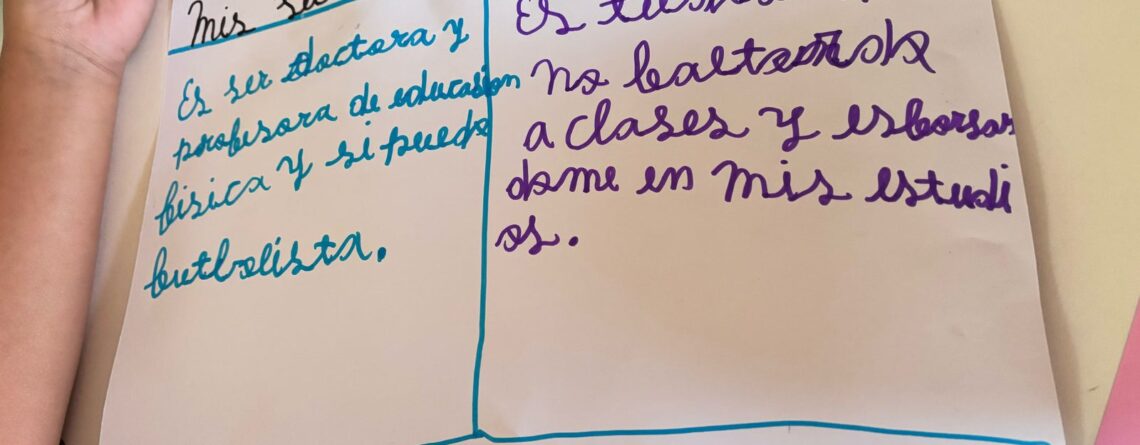 Mis
Es ser doctora y
profesora de educasion
fisica y si puedo
futbolista.
Es
no faltando
a clases y esforsan
dome en mis estudi
os.